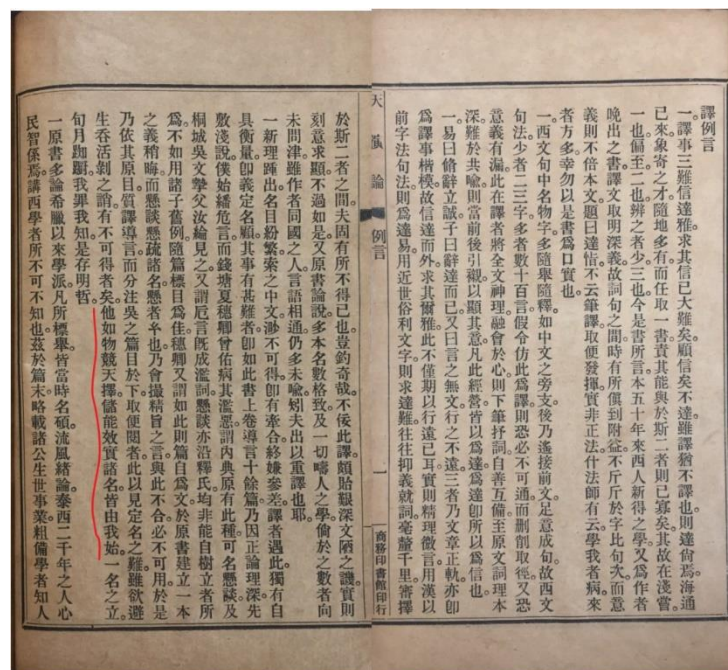 譯例言
一譯事三難信達雅求其信已大難矣顧信矣不達雖譯猶不譯也則達尙焉。海通
已來象寄之才。隨地多有而任取一書責其能與於斯二者則已寡矣。其故在淺嘗。
一也偏至二也辨之者少三也今是書所言本五十年來西人新得之學又爲作者
晚出之書譯文取明深義故詞句之間時有所傎到附益不斤斤於字比句次而意
義則不倍本文。題曰達恉不云筆譯取便發揮實非正法什法師有云學我者病來
者方多幸勿以是書爲口實也。
一西文句中名物字多隨舉隨釋如中文之旁支後乃遙接前文足意成句。故西文
句法少者二三字多者數十百言假令仿此爲譯則恐必不可通而刪削取徑又恐
意義有漏。此在譯者將全文神理融會於心則下筆抒詞自善互備至原文詞理本
深。難於共喩則當前後引襯以顯其意凡此經營皆以爲達爲達卽所以爲信也。
一易曰脩辭立誠子曰辭達而已又曰言之無文行之不遠三者乃文章正軌亦卽
爲譯事楷模故信達而外求其爾雅此不僅期以行遠已耳實則精理微言用漢以
前字法句法則爲達易用近世俗利文字則求達難往往抑義就詞毫釐千里審擇
天演論
例言
一
商務印書館印行
於斯二者之間夫固有所不得已也豈釣奇哉。不佞此譯頗貽艱深文陋之譏實則
刻意求顯不過如是又原書論說多本名數格致及一切疇人之學倘於之數者向
未問津。雖作者同國之人言語相通仍多未喩矧夫出以重譯也耶
一新理踵出名目紛繁索之中文渺不可得卽有牽合終嫌參差譯者遇此獨有自
具衡量卽義定名顧其事有甚難者卽如此書上卷導言十餘篇乃因正論理深先
敷淺說僕始繙卮言而錢塘夏穗卿曾佑病其濫惡謂內典原有此種可名懸談及
桐城吳丈摯父汝綸見之又謂卮言旣成濫詞懸談亦沿釋氏均非能自樹立者所
爲不如用諸子舊例隨篇標目爲佳穗卿又謂如此則篇自爲文於原書建立一本
之義稍晦而懸談懸疏諸名懸者半也乃會撮精旨之言與此不合必不可用於是
乃依其原目質譯導言而分注吳之篇目於下取便閱者此以見定名之難雖欲避
生吞活剝之誚有不可得者矣。他如物競天擇儲能效實諸名皆由我始。一名之立
旬月踟躕我罪我知是存明哲。
一原書多論希臘以來學派凡所標舉皆當時名碩流風緖論泰西二千年之人心
民智係焉講西學者所不可不知也。茲於篇末略載諸公生世事業粗備學者知人